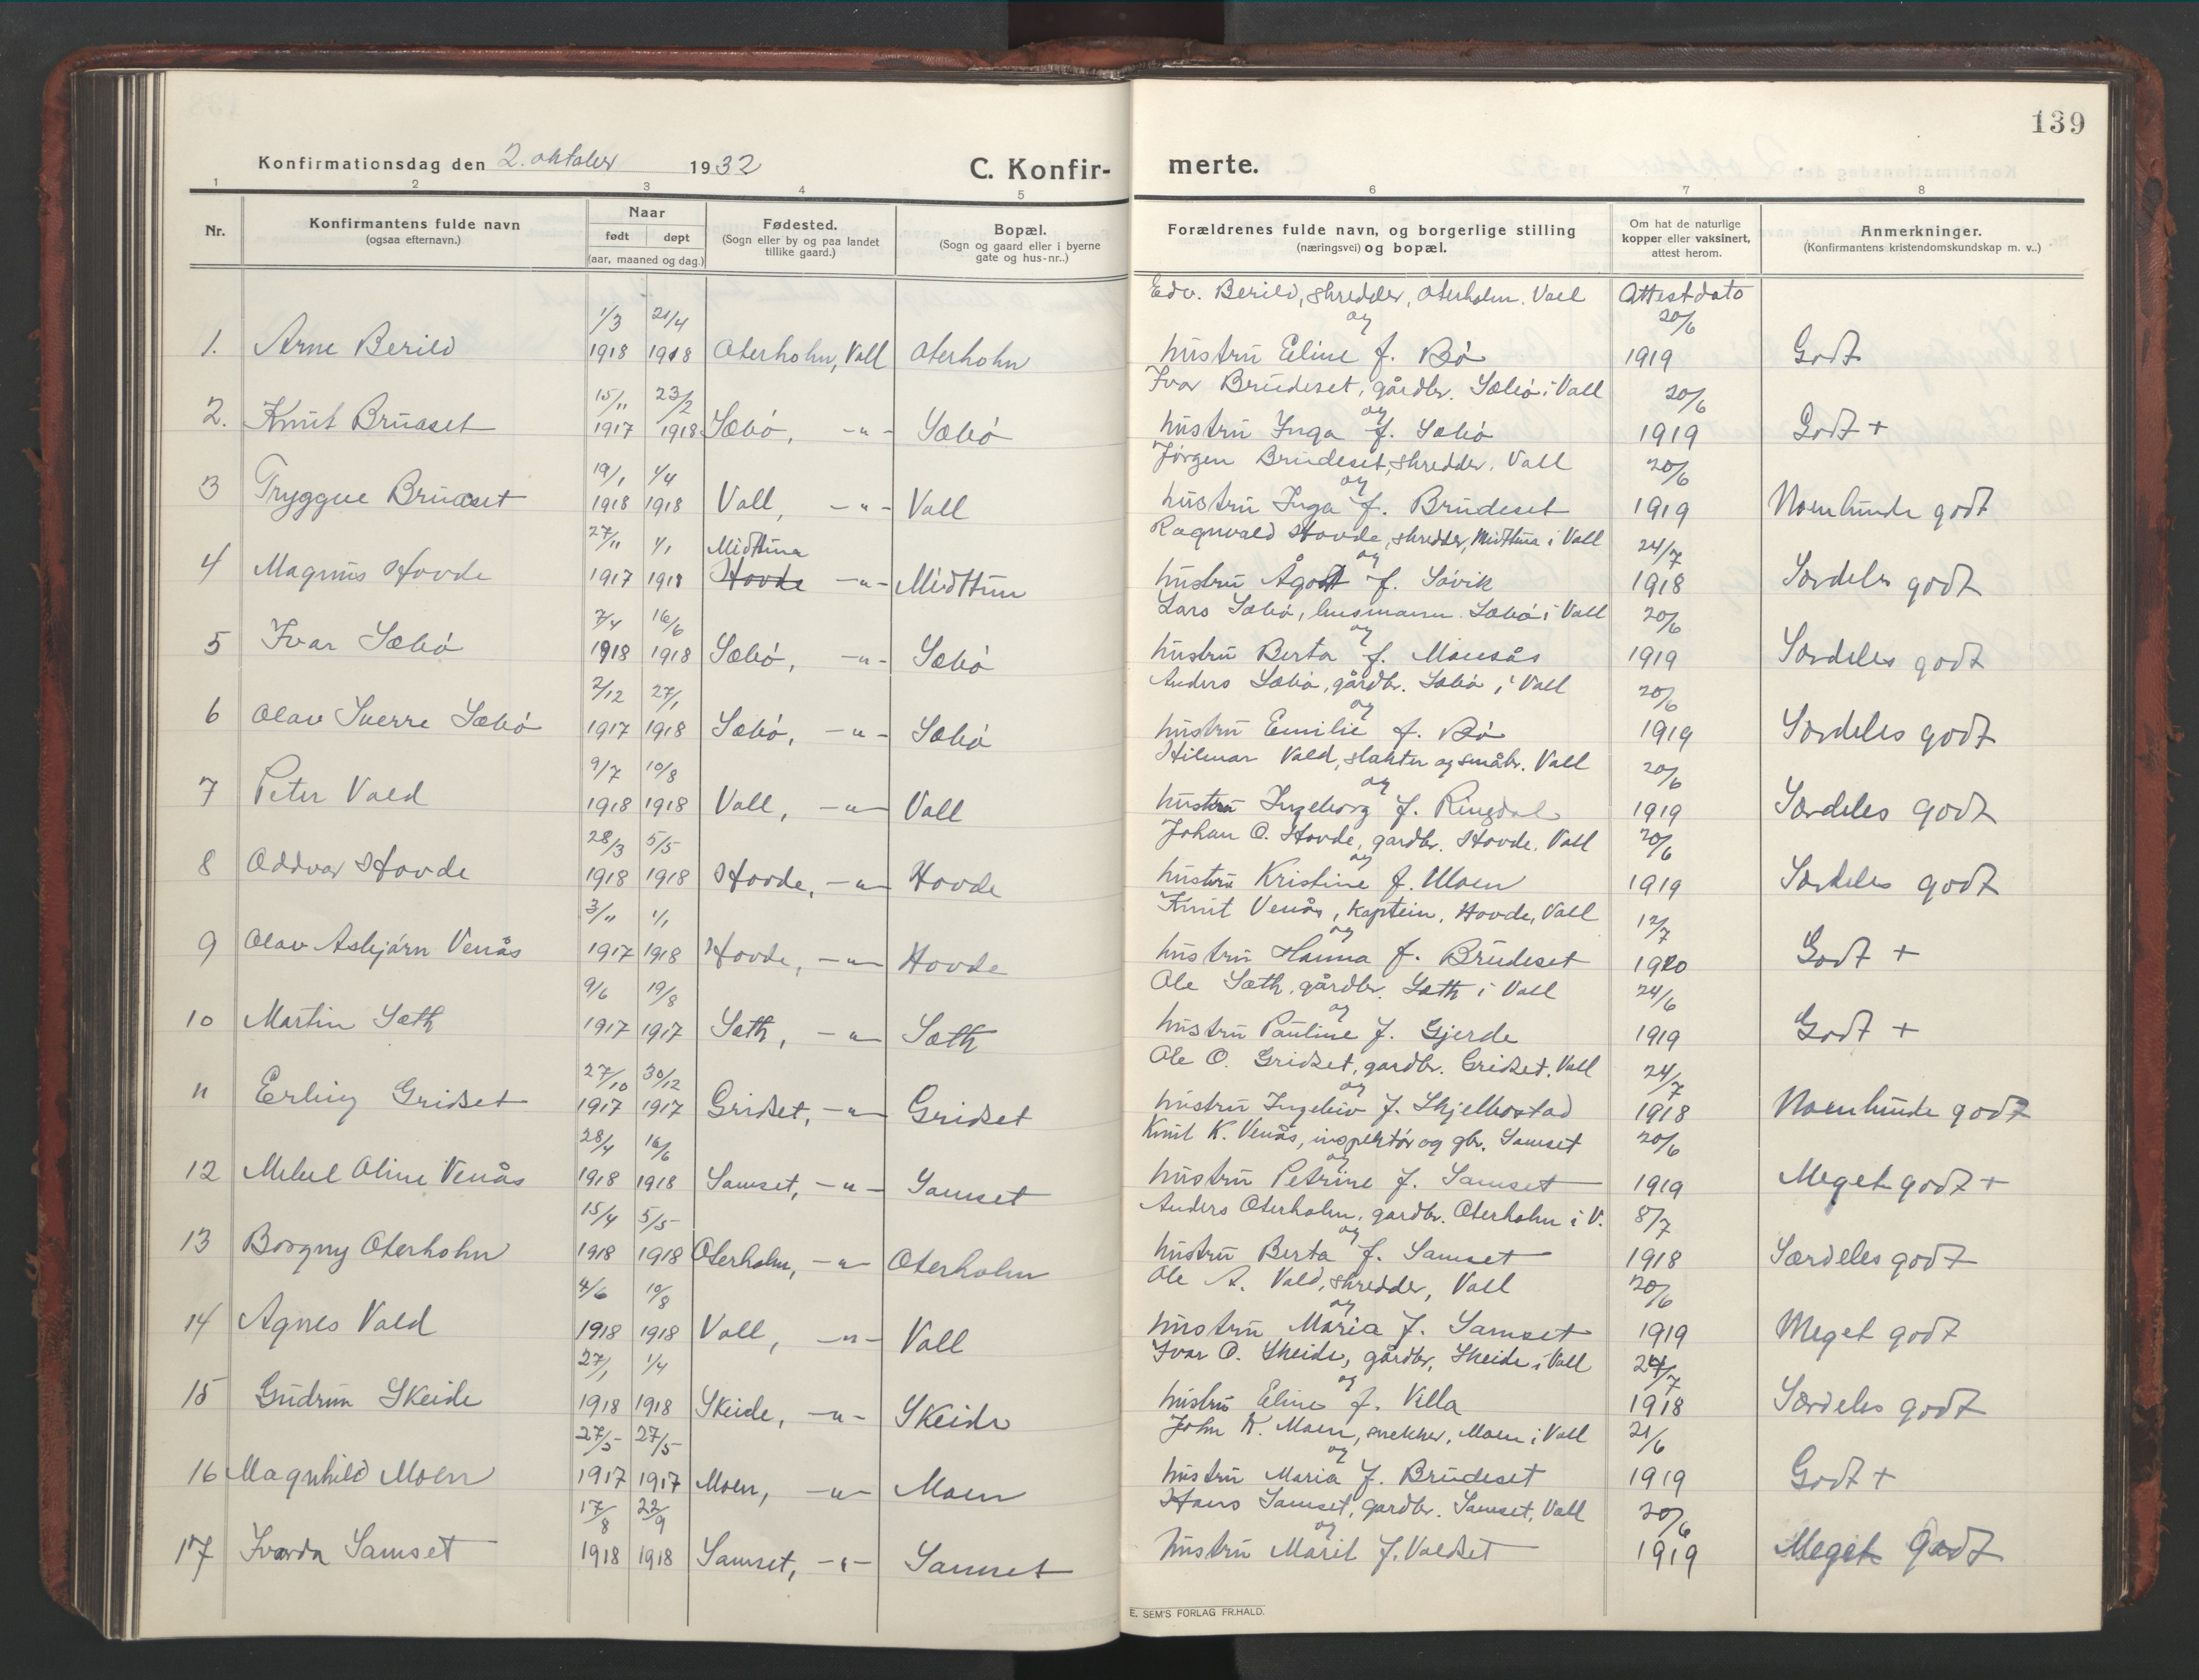 139
Konfirmationsdag den 2. oktober 1932
C. Konfir-
merte.
1 2 3 4 5 6 7 8
Nr.
Konfirmantens fulde navn
(ogsaa efternavn.)
Naar
født døpt
(aar, maaned og dag.)
Fødested.
(Sogn eller by og paa landet
tillike gaard.)
Bopæl.
(Sogn og gaard eller i byerne
gate og hus-nr..)
Forældrenes fulde navn, og borgerlige stilling
(næringsvei) og bopæl.
Om hat de naturlige
kopper eller vaksinert,
attest herom.
Anmerkninger.
(Konfirmantens kristendomskundskap m. v..)
Edv. Berild, skredder, Oterholm. Vall Attestdato
1/3 21/4 og 20/6
1. Arne Berild 1918 1918 Oterholm, Vall Oterholm hustru Eline f. Bø 1919 Godt
Ivar Brudeset, gårdbr. Sæbø i Vall
15/11 23/2 og 20/6
2. Knut Brudeset 1917 1918 Sæbø, -"- Sæbø hustru Inga f. Sæbø 1919 Godt +
Jørgen Brudeset, skredder. Vall
19/1 1/4 og 20/6
3 Tryggve Brudeset 1918 1918 Vall, -"- Vall hustru Inga f. Brudeset 1919 Noenlunde godt
Ragnvald Hovde, skredder, Midttun i Vall
27/11 1/1 Midttun og 24/7
4 Magnus Hovde 1917 1918 Hovde -"- Midttun hustru Ågot f. Søvik 1918 Særdeles godt
Lars Sæbø, husmann. Sæbø i Vall
7/4 16/6 og 20/6
5 Ivar Sæbø 1918 1918 Sæbø, -"- Sæbø hustru Berta f. Månsås 1919 Særdeles godt
Anders Sæbø, gårdbr. Sæbø i Vall
2/12 27/1 og 20/6
6 Olav Sverre Sæbø 1917 1918 Sæbø, -"- Sæbø hustru Emilie f. Bø 1919 Særdeles godt
Hilmar Vald, slakter og småbr. Vall
9/7 10/8 og 20/6
7 Peter Vald 1918 1918 Vall, -"- Vall hustru Ingeborg f. Ringdal 1919 Særdeles godt
Johan O. Hovde, gardbr. Hovde. Vall
28/3 5/5 og 20/6
8 Oddvar Hovde 1918 1918 Hovde, -"- Hovde hustru Kristine f. Moen 1919 Særdeles godt
Knut Venås, kaptein, Hovde, Vall
3/11 1/1 og 12/7
9 Olav Asbjørn Venås 1917 1918 Hovde, -"- Hovde hustru Hanna f. Brudeset 1920 Godt +
Ole Sæth, gårdbr. Sæth i Vall
9/6 19/8 og 24/6
10 Martin Sæth 1917 1917 Sæth, -"- Sæth hustru Pauline f. Gjerde 1919 Godt +
Ole O. Gridset, gardbr. Gridset, Vall
27/10 30/12 og 24/7
11 Erling Gridset 1917 1917 Gridset, -"- Gridset hustru Ingebio f. Skjelbostad 1918 Noenlunde godt
Knut K. Venås, inspektør og gbr. Samset
28/4 16/6 og 20/6
12 Oline Venås 1918 1918 Samset, -"- Samset hustru Petrine f. Samset 1919 Meget godt +
Anders Oterholm, gardbr. Oterholm i V.
15/4 5/5 og 8/7
13 Borgny Oterholm 1918 1918 Oterholm, -"- Oterholm hustru Berta f. Samset 1918 Særdeles godt
Ole A. Vald, skredder, Vall
4/6 10/8 og 20/6
14 Agnes Vald 1918 1918 Vall, -"- Vall hustru Maria f. Samset 1919 Meget godt
Ivar O. Skeide, gårdbr. Skeide i Vall
27/1 1/4 og 24/7
15 Gudrun Skeide 1918 1918 Skeide, -"- Skeide hustru Eline f. Villa 1918 Særdeles godt
John K. Moen, snekker, Moen i Vall
27/5 27/5 og 21/6
16 Magnhild Moen 1917 1917 Moen, -"- Moen hustru Maria f. Brudeset 1919 Godt +
Hans Samset, gardbr. Samset, Vall
17/8 22/9 og 20/6
17 Ivarda Samset 1918 1918 Samset, -"- Samset hustru Marit f. Valdset 1919 Meget godt
E. SEM'S FORLAG FR.HALD.